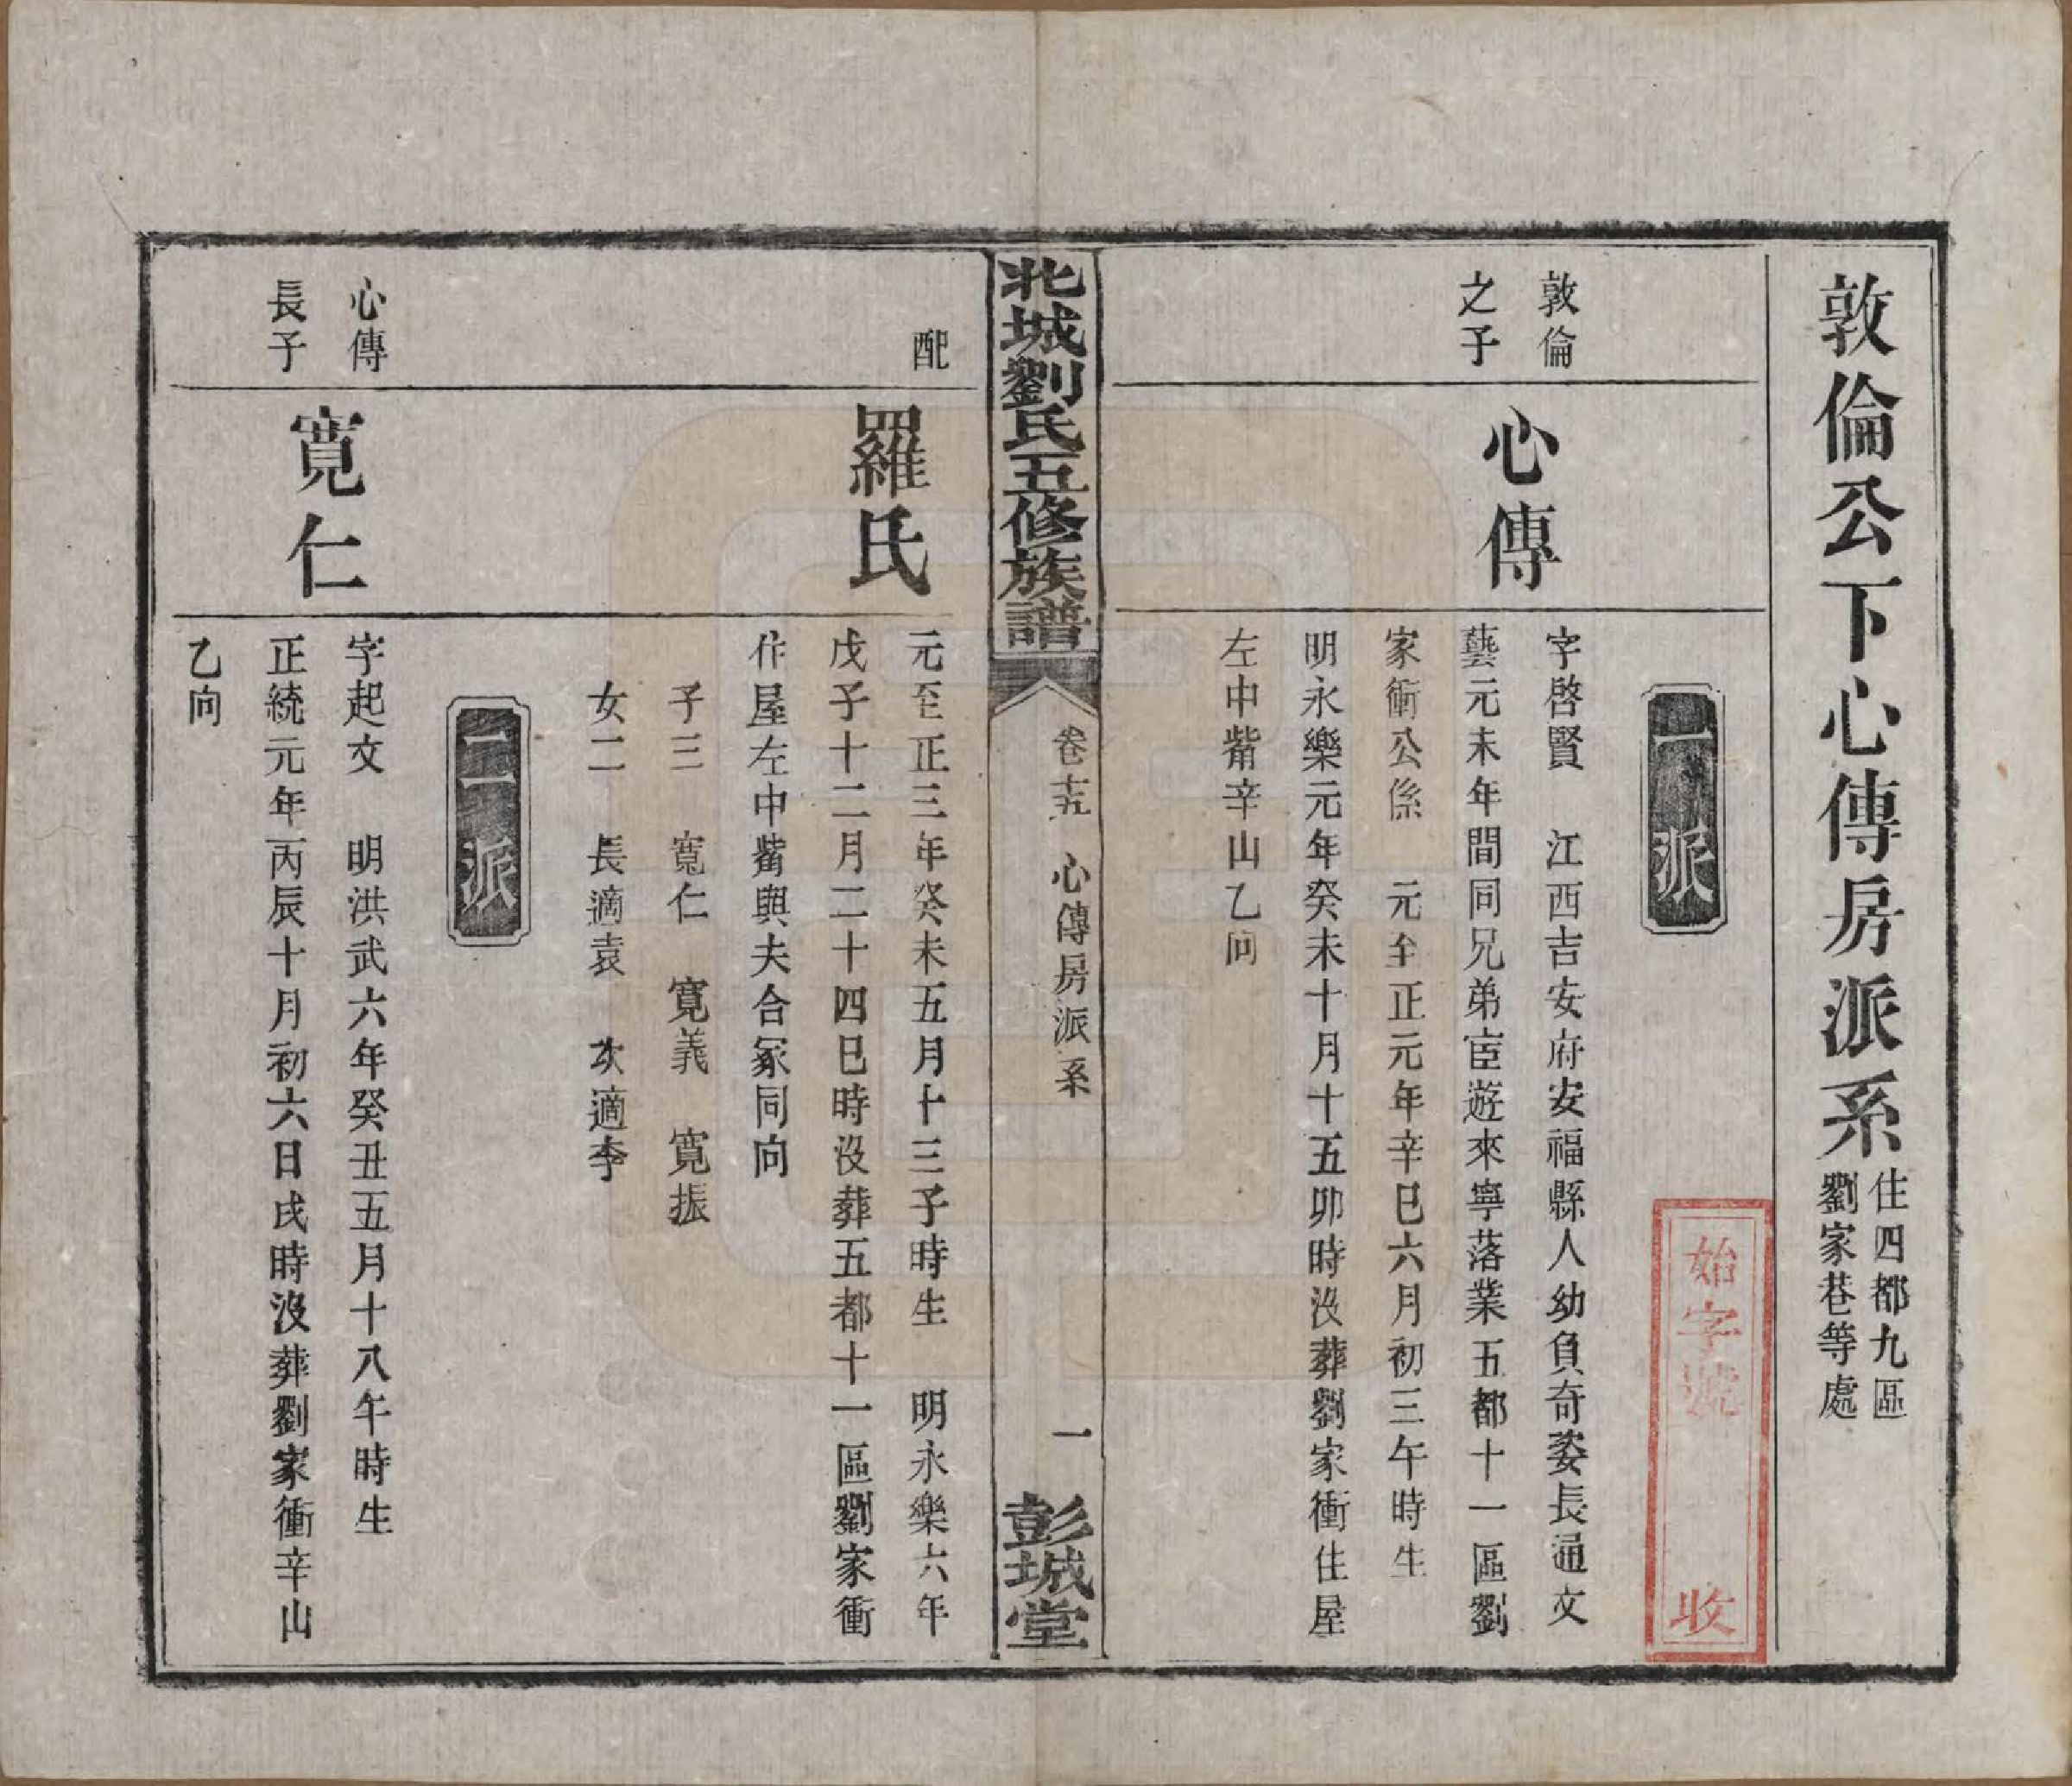 敦倫公下心傳房派系
住四都九區
劉家巷等處
始字號 收
一派
敦倫
之子
心傳
字啓賢 江西吉安府安福縣人幼負奇姿長通文
藝元末年間同兄弟宦遊來寧落業五都十一區劉
家衝公係 元至正元年辛巳六月初三午時生
明永樂元年癸未十月十五卯時沒葬劉家衝住屋
左中觜辛山乙向
北城劉氏五修族譜
卷十五 心傳房派系
一
彭城堂
配
羅氏
元至正三年癸未五月十三子時生 明永樂六年
戊子十二月二十四巳時沒葬五都十一區劉家衝
住屋左中觜與夫合冢同向
子三 寬仁 寬義 寬振
女二 長適袁 次適李
二派
心傳
長子
寬仁
字起文 明洪武六年癸丑五月十八午時生
正統元年丙辰十月初六日戌時沒葬劉家衝辛山
乙向